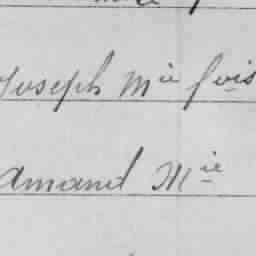 Joseph Mie fois
Amand Mie